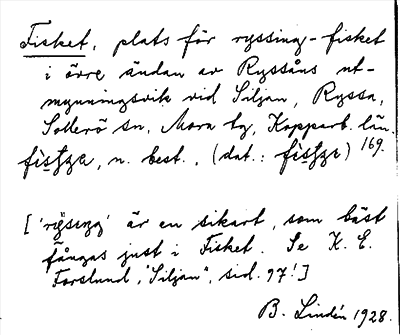 Fisket, plats för ryssing-fisket
i övre ändan av Ryssåns ut-
mynningsvik vid Siljan, Ryssa,
Sollerö sn, Mora tg, Kopparb. län.
n. best., (dat.: ) 169.
[' ' är en sikart, som bäst
fångas just i Fisket. Se K. E.
Forslund, "Siljan", sid. 97!]
B. Lindén 1928.